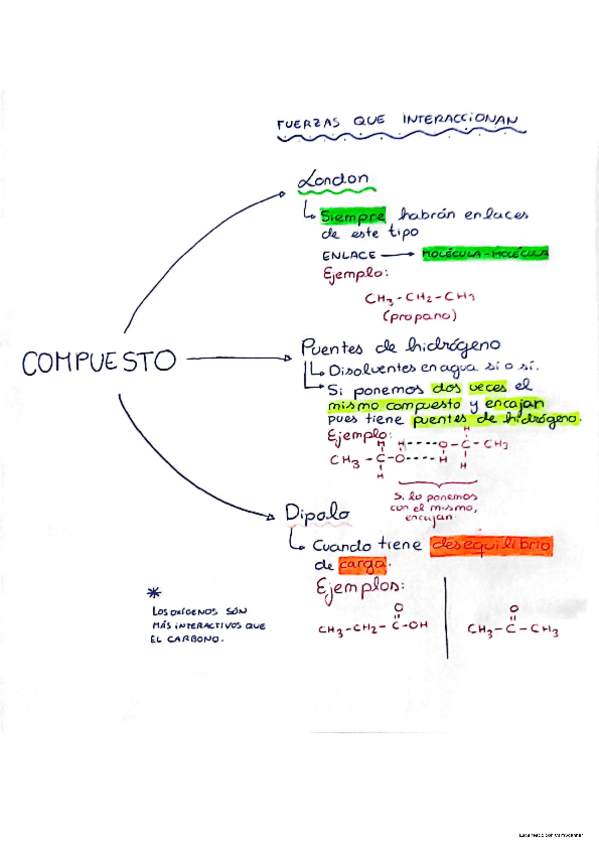 FUERZAS QUE INTERACCIONAN
London
Siempre habrán enlaces
de este tipo
ENLACE → MOLÉCULA-MOLÉCULA
Ejemplo:
CH3-CH2-CH3
(propano)
COMPUESTO
Puentes de hidrógeno
Disolventes en agua sí o sí.
Si ponemos dos veces el
mismo compuesto y encajan
pues tiene puentes de hidrógeno.
Ejemplo:
H H H
CH3-C-O----H O-C-CH3
H H
Si lo ponemos
con el mismo,
encajan.
Dipolo
Cuando tiene desequilibrio
de carga.
Ejemplos:
O
CH3-CH2-C-OH
O
CH3-C-CH3
*
LOS OXÍGENOS SÓN
MÁS INTERACTIVOS QUE
EL CARBONO.